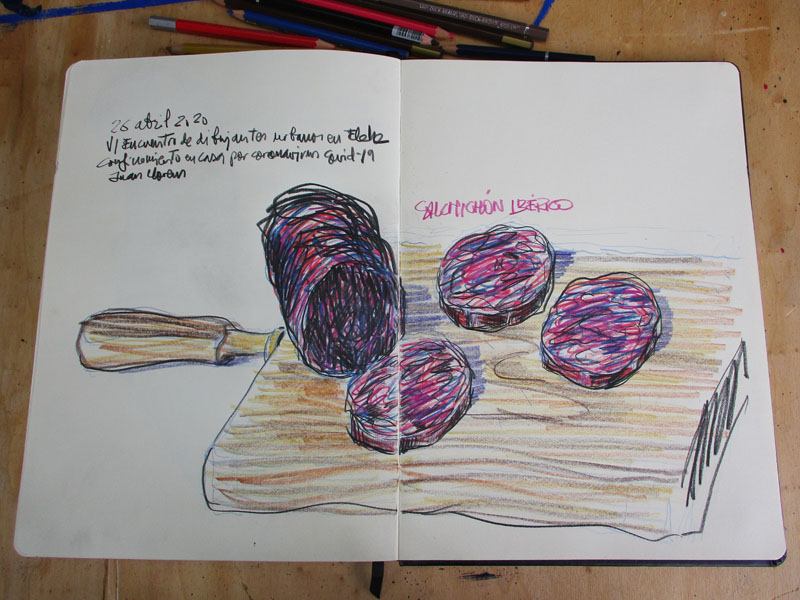 26 abril 2020
VI Encuentro de dibujantes urbanos en Elche
Confinamiento en casa por coronavirus covid-19
Juan Llorens
SALCHICHÓN IBÉRICO